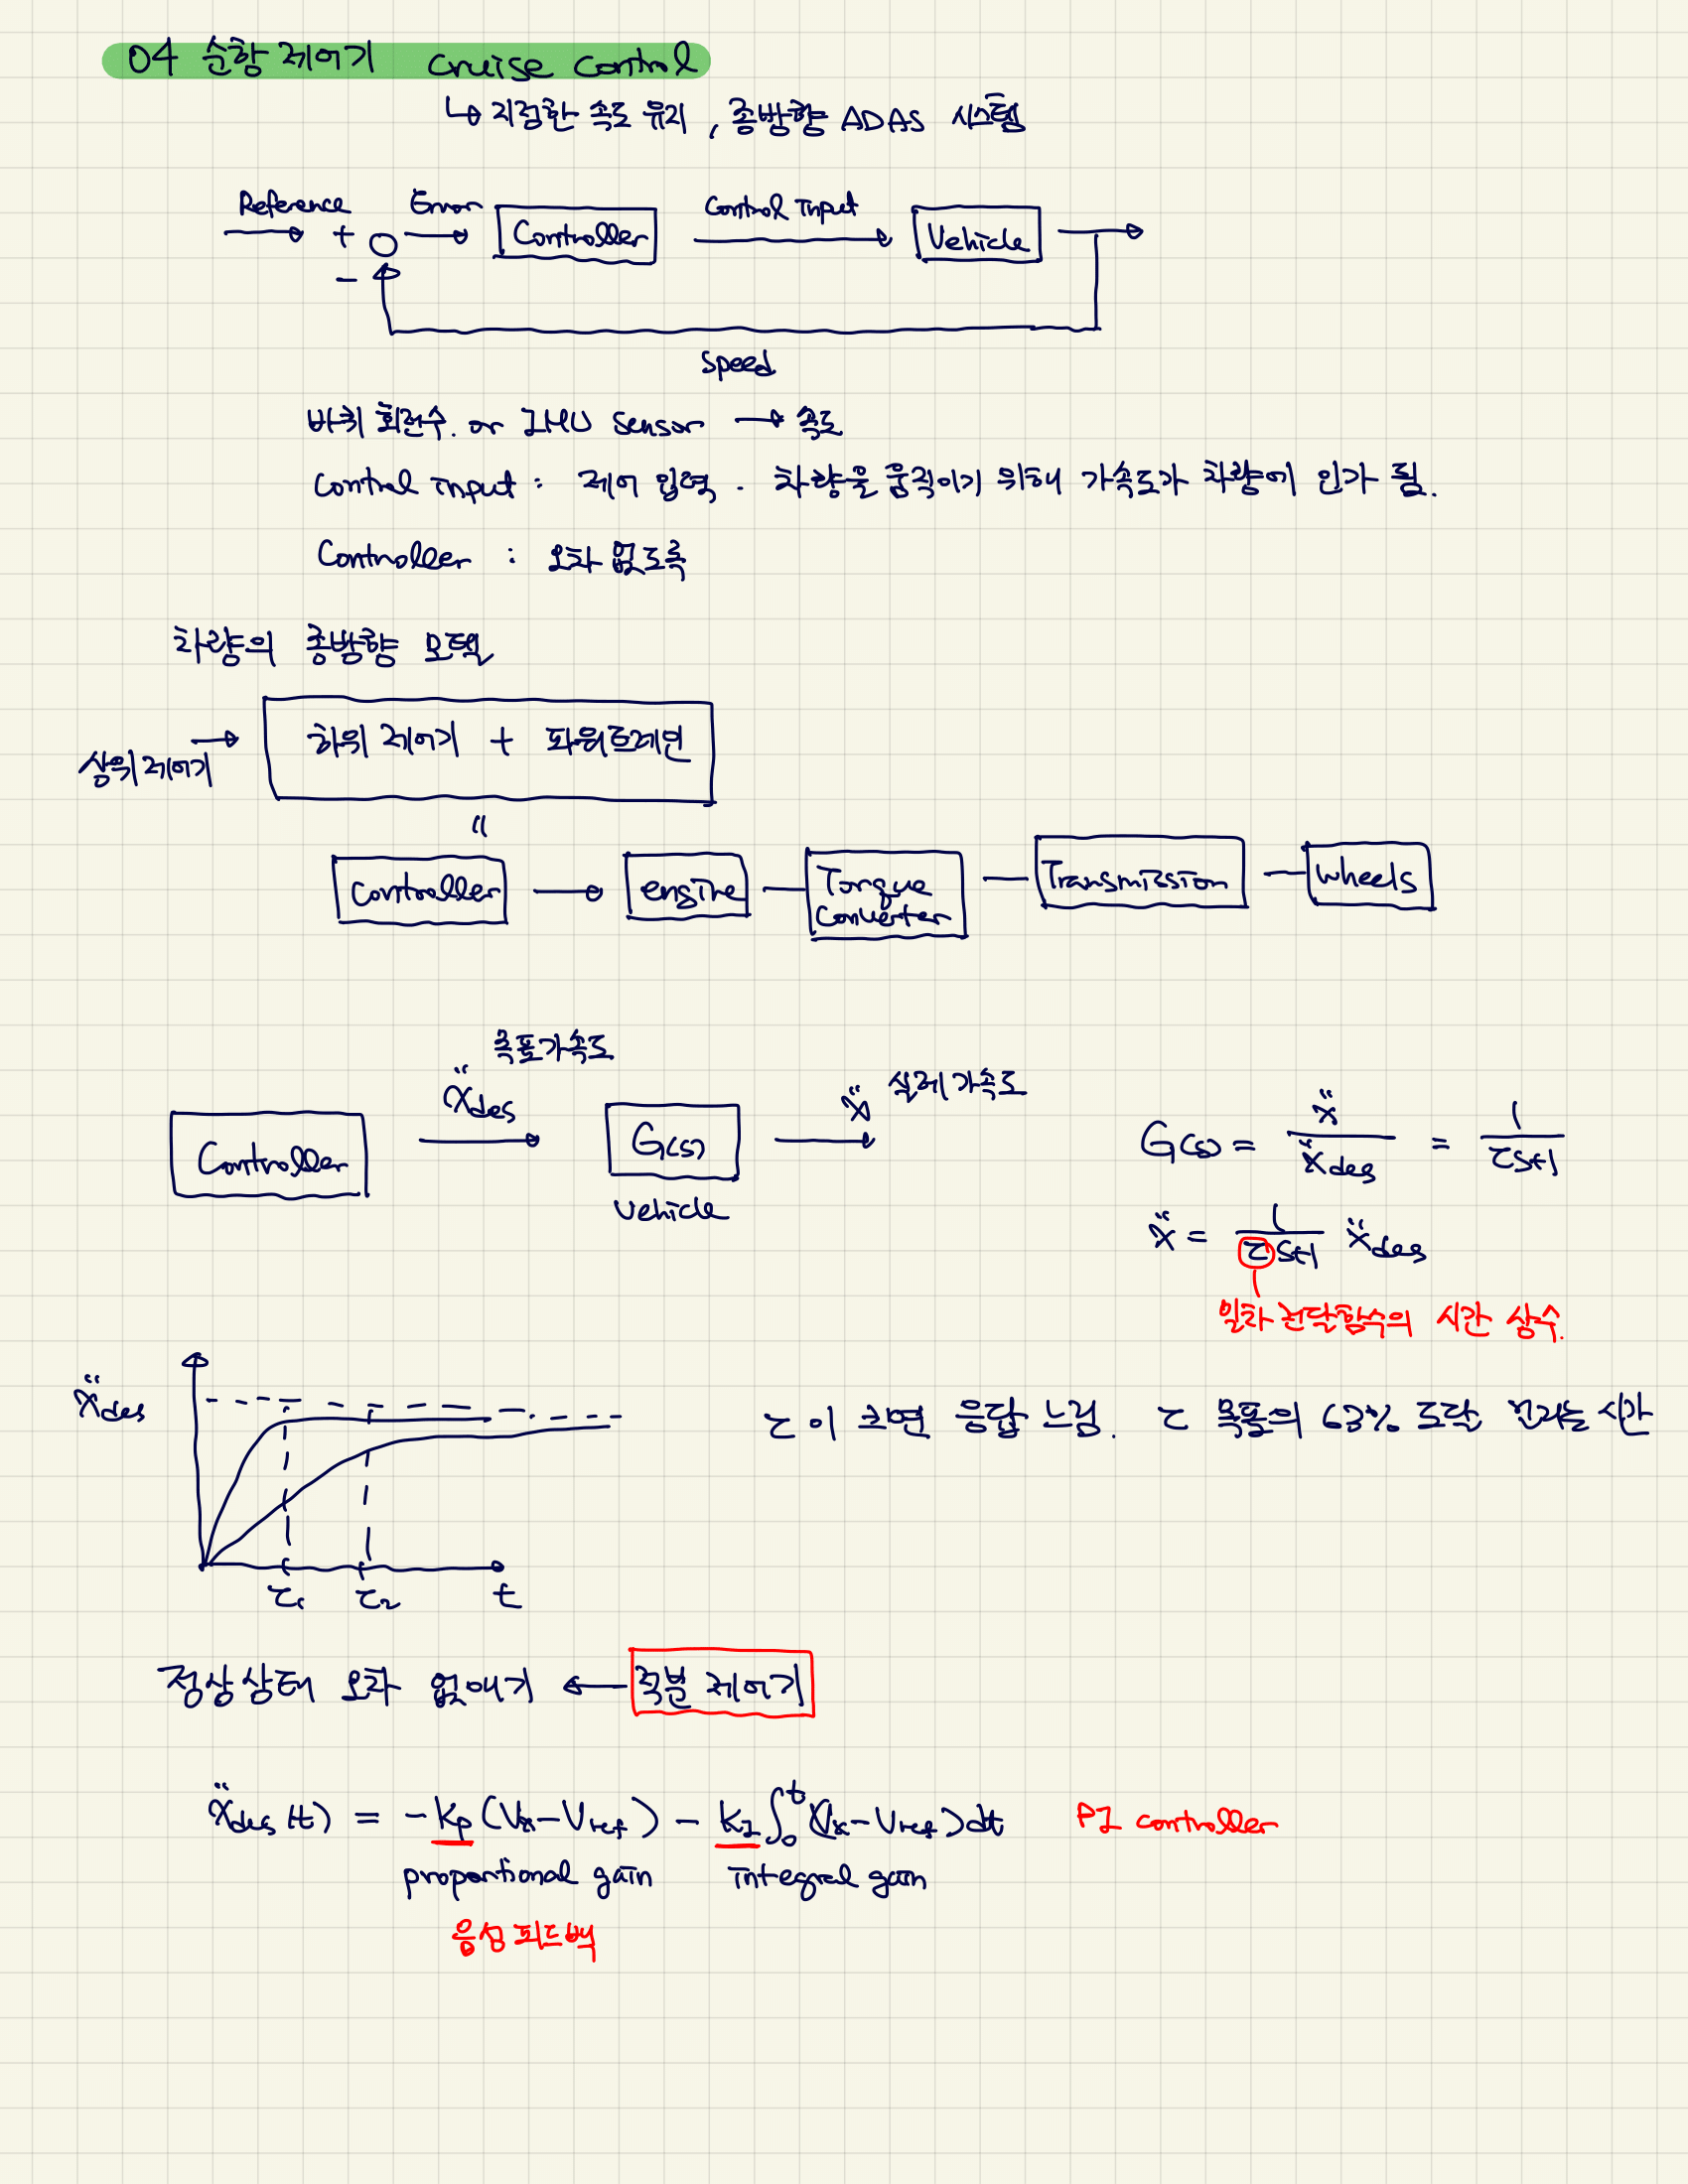 04 순항 제어기 Cruise Control
↳ 지정한 속도 유지, 종방향 ADAS 시스템
Reference Error Control Input
+ Controller Vehicle
−
Speed
바퀴 회전수. or IMU Sensor → 속도
Control Input : 제어 입력. 차량을 움직이기 위해 가속도가 차량에 인가 됨.
Controller : 오차 없도록
차량의 종방향 모델
상위 제어기 → 하위 제어기 + 파워트레인
"
Controller → engine — Torque Converter — Transmission — wheels
목표가속도
ẍdes ẍ 실제 가속도
Controller → G(s) →
Vehicle
G(s) = ẍ / ẍdes = 1 / (τs+1)
ẍ = 1 / (τs+1) ẍdes
일차 전달함수의 시간 상수.
ẍdes
τ이 크면 응답 느림. τ 목표의 63% 도달 걸리는 시간
τ₁ τ₂ t
정상상태 오차 없애기 ← 적분 제어기
ẍdes(t) = −Kp(Vx−Vref) − KI∫₀ᵗ(Vx−Vref)dt PI controller
proportional gain integral gain
음성 피드백